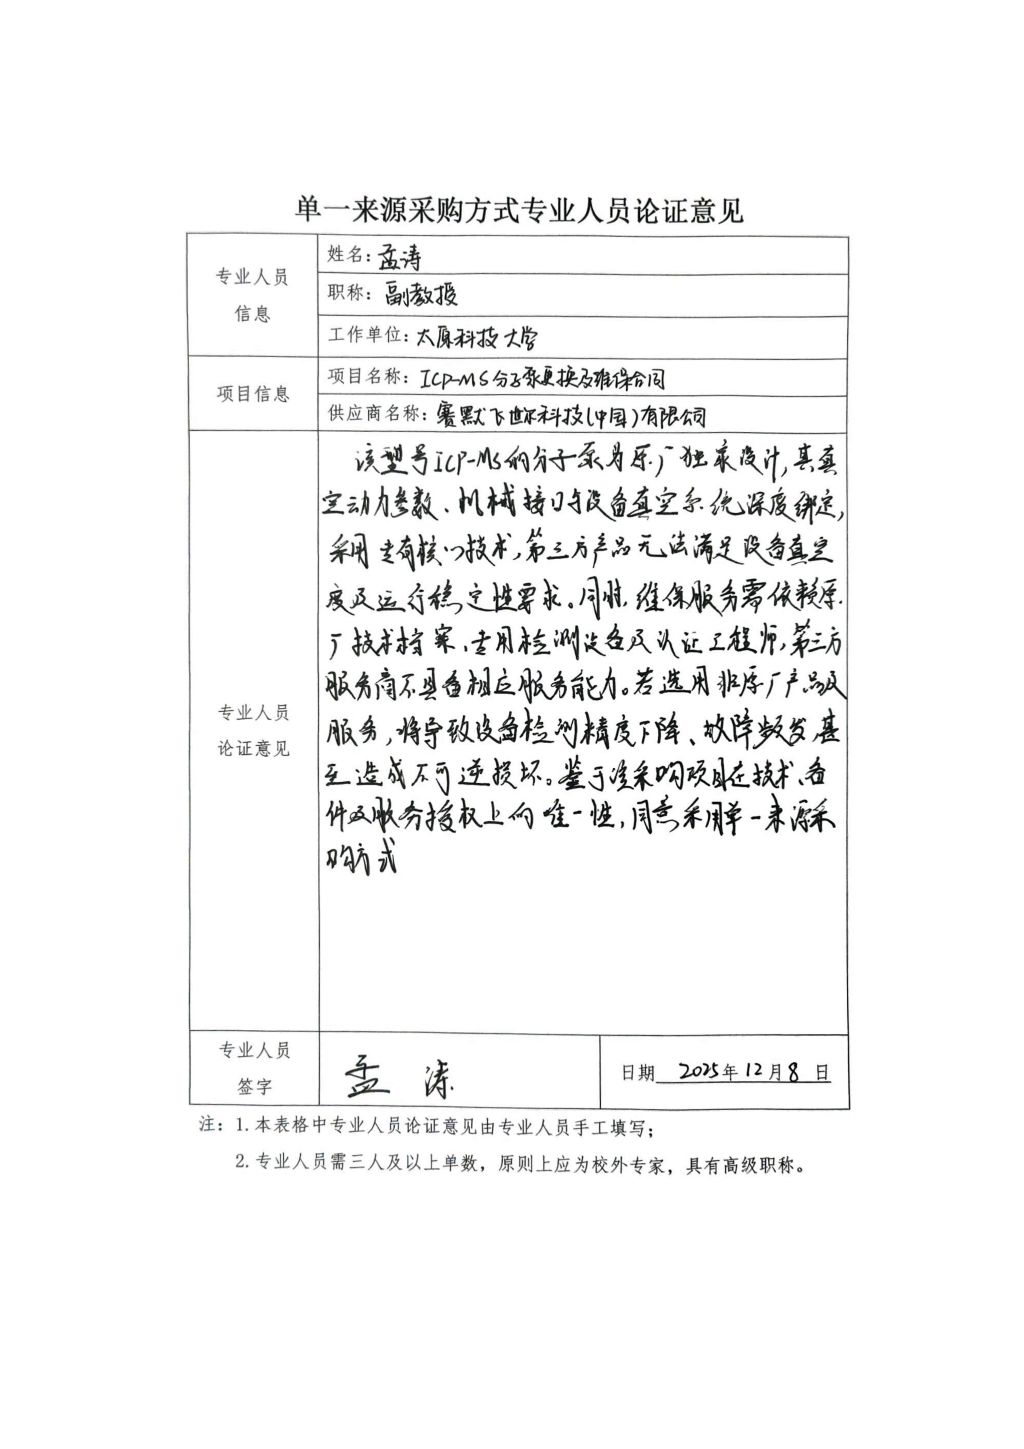 单一来源采购方式专业人员论证意见
专业人员
信息
姓名：孟涛
职称：副教授
工作单位：太原科技大学
项目信息
项目名称：ICP-MS分子泵更换及维保合同
供应商名称：赛默飞世尔科技(中国)有限公司
专业人员
论证意见
该型号ICP-MS的分子泵为原厂独家设计，其真
空动力参数、机械接口与设备真空系统深度绑定，
采用专有核心技术，第三方产品无法满足设备真空
度及运行稳定性要求。同时，维保服务需依赖原
厂技术档案、专用检测设备及认证工程师，第三方
服务商不具备相应服务能力。若选用非原厂产品及
服务，将导致设备检测精度下降、故障频发，甚
至造成不可逆损坏。鉴于该采购项目在技术、备
件及服务授权上的唯一性，同意采用单一来源采
购方式
专业人员
签字
孟涛
日期 2025年12月8日
注：1.本表格中专业人员论证意见由专业人员手工填写；
2.专业人员需三人及以上单数，原则上应为校外专家，具有高级职称。